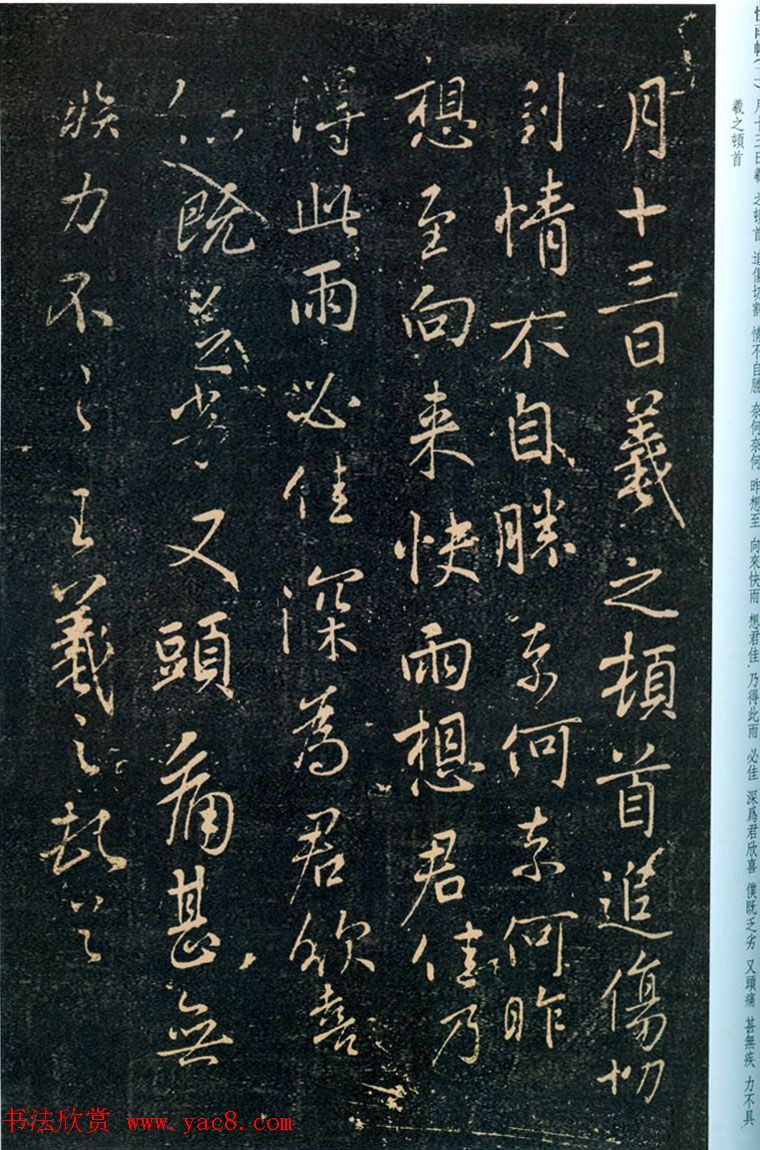 月十三日羲 之頓首 追傷切割 情不自勝 奈何奈何 昨想至 向來快雨 想君佳 乃得此雨 必佳 深爲君欣喜 僕既乏劣 又頭痛 甚無疾 力不具
羲之頓首
月十三日羲之頓首追傷切
割情不自勝奈何奈何昨
想至向来快雨想君佳乃
得此雨必佳深為君欣喜
既乏劣又頭痛甚無
疾力不王羲之
书法欣赏 www.yac8.com